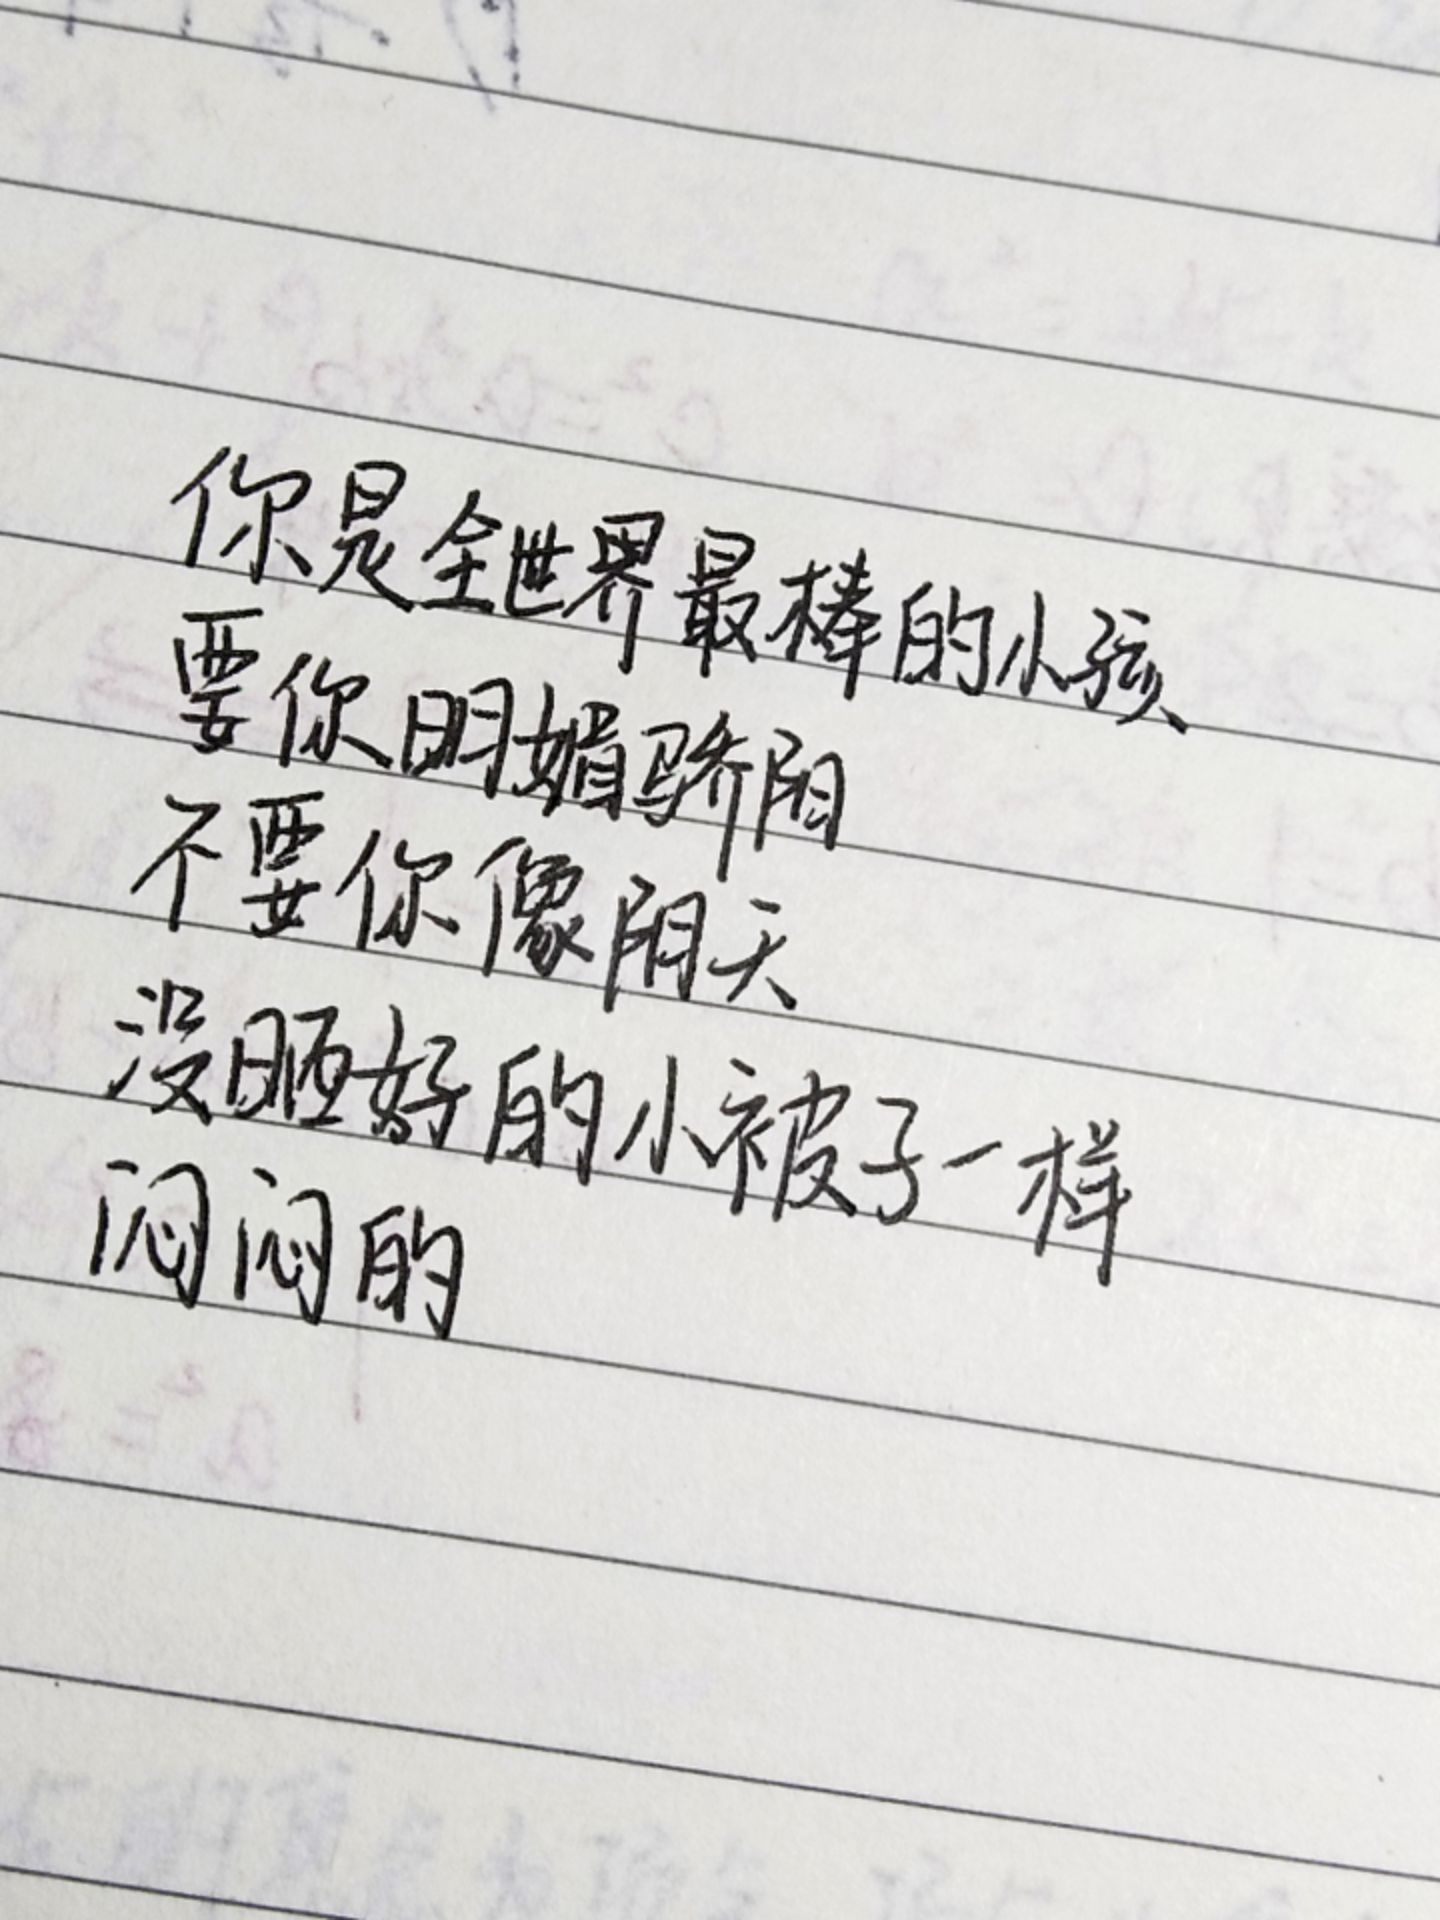 你是全世界最棒的小孩
要你明媚骄阳
不要你像阴天
没晒好的小被子一样
闷闷的